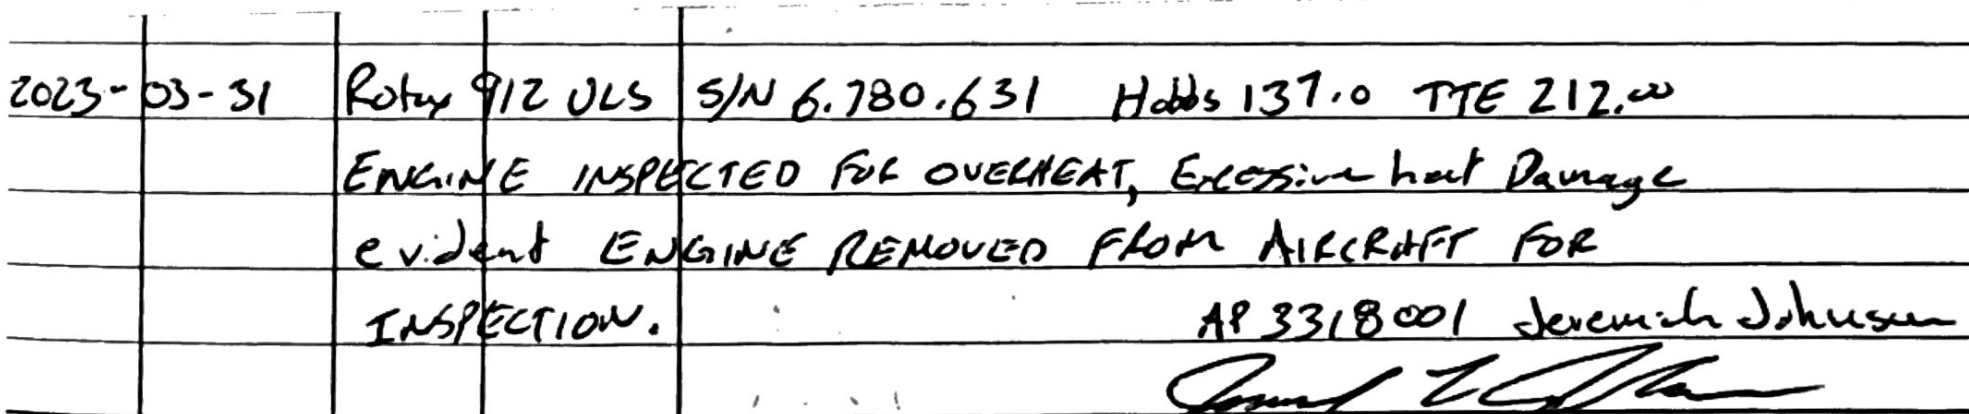 2023-03-31 Rotax 912 ULS S/N 6.780.631 Hobbs 137.0 TTE 212.00
ENGINE INSPECTED FOR OVERHEAT, Excessive heat Damage
evident ENGINE REMOVED FROM AIRCRAFT FOR
INSPECTION. AP 3318001 Jeremiah Johnson